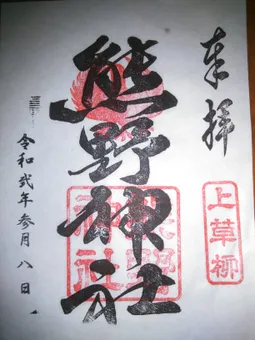 奉拝
上草柳
熊野神社
令和弐年参月八日